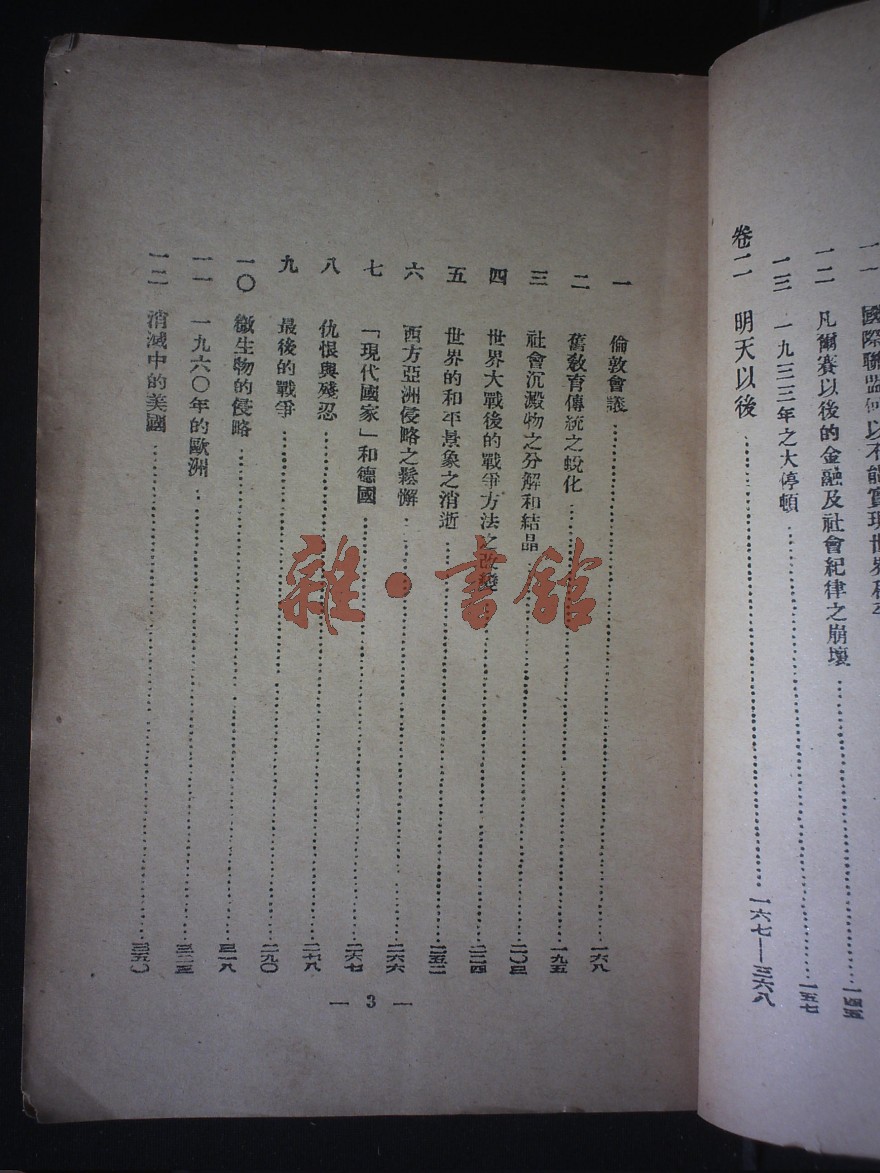 一一 國際聯盟何以不能實現世界和平……一四五
一二 凡爾賽以後的金融及社會紀律之崩壞……一四五
一三 一九三三年之大停頓……一五七
卷二 明天以後……一六七—三六八
一 倫敦會議……一六八
二 舊敎育傳統之蛻化……一九五
三 社會沉澱物之分解和結晶……二〇三
四 世界大戰後的戰爭方法之改變……二二四
五 世界的和平景象之消逝……二五二
六 西方亞洲侵略之鬆懈……二六六
七 「現代國家」和德國……二六七
八 仇恨與殘忍……二七八
九 最後的戰爭……二九〇
一〇 微生物的侵略……三一八
一一 一九六〇年的歐洲……三二五
一二 消滅中的美國……三五〇
— 3 —
雜·書館